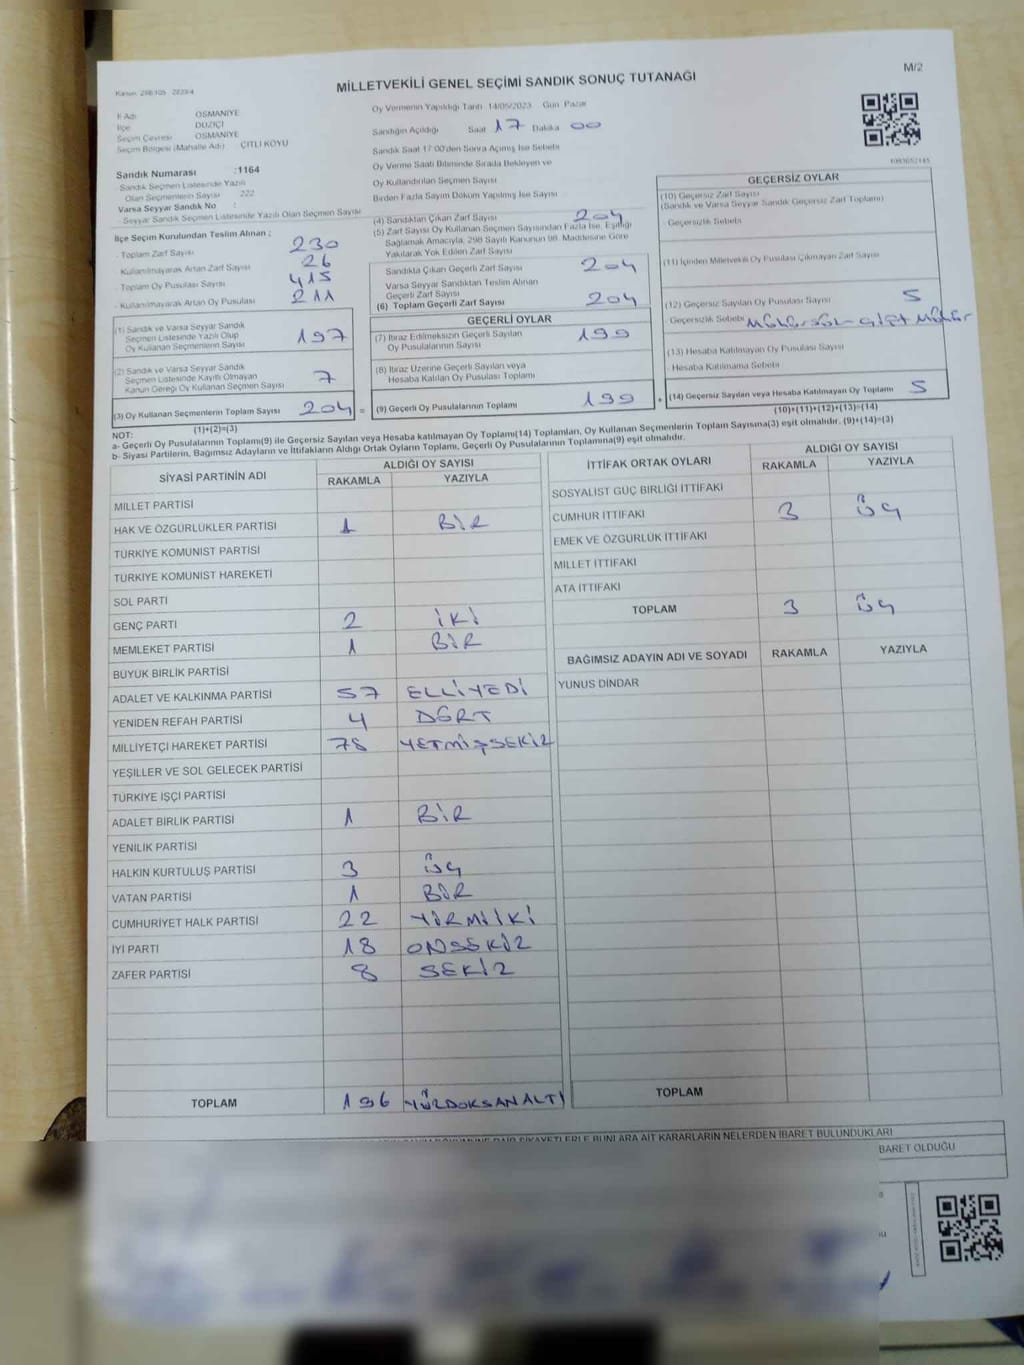 M/2
MİLLETVEKİLİ GENEL SEÇİMİ SANDIK SONUÇ TUTANAĞI
İl Adı OSMANİYE
İlçe DÜZİÇİ
Seçim Çevresi OSMANİYE
Seçim Bölgesi (Mahalle Adı) ÇİTLİ KÖYÜ
Sandık Numarası :1164
- Sandık Seçmen Listesinde Yazılı
Olan Seçmenlerin Sayısı 222
Varsa Seyyar Sandık No :
- Seyyar Sandık Seçmen Listesinde Yazılı Olan Seçmen Sayısı
İlçe Seçim Kurulundan Teslim Alınan ;
- Toplam Zarf Sayısı 230
Kullanılmayarak Artan Zarf Sayısı 26
- Toplam Oy Pusulası Sayısı 415
- Kullanılmayarak Artan Oy Pusulası 211
(1) Sandık ve Varsa Seyyar Sandık
Seçmen Listesinde Yazılı Olup
Oy Kullanan Seçmenlerin Sayısı 197
(2) Sandık ve Varsa Seyyar Sandık
Seçmen Listesinde Kayıtlı Olmayan
Kanun Gereği Oy Kullanan Seçmen Sayısı 7
(3) Oy Kullanan Seçmenlerin Toplam Sayısı 204 =
(1)+(2)=(3)
Oy Vermenin Yapıldığı Tarih 14/05/2023 Gün Pazar
Sandığın Açıldığı Saat 17 Dakika 00
Sandık Saat 17:00'den Sonra Açılmış İse Sebebi
Oy Verme Saati Bitiminde Sırada Bekleyen ve
Oy Kullandırılan Seçmen Sayısı
Birden Fazla Sayım Döküm Yapılmış İse Sayısı
(4) Sandıktan Çıkan Zarf Sayısı 204
(5) Zarf Sayısı Oy Kullanan Seçmen Sayısından Fazla İse, Eşitliği
Sağlamak Amacıyla, 298 Sayılı Kanunun 98. Maddesine Göre
Yakılarak Yok Edilen Zarf Sayısı
Sandıkta Çıkan Geçerli Zarf Sayısı 204
Varsa Seyyar Sandıktan Teslim Alınan
Geçerli Zarf Sayısı
(6) Toplam Geçerli Zarf Sayısı 204
GEÇERLİ OYLAR
(7) İtiraz Edilmeksizin Geçerli Sayılan
Oy Pusulalarının Sayısı 199
(8) İtiraz Üzerine Geçerli Sayılan veya
Hesaba Katılan Oy Pusulası Toplamı
(9) Geçerli Oy Pusulalarının Toplamı 199 +
GEÇERSİZ OYLAR
(10) Geçersiz Zarf Sayısı
(Sandık ve Varsa Seyyar Sandık Geçersiz Zarf Toplamı)
- Geçersizlik Sebebi
(11) İçinden Milletvekili Oy Pusulası Çıkmayan Zarf Sayısı
(12) Geçersiz Sayılan Oy Pusulası Sayısı 5
- Geçersizlik Sebebi Mühürsüz - Çift Mühür
(13) Hesaba Katılmayan Oy Pusulası Sayısı
- Hesaba Katılmama Sebebi
(14) Geçersiz Sayılan veya Hesaba Katılmayan Oy Toplamı 5
(10)+(11)+(12)+(13)=(14)
NOT:
a- Geçerli Oy Pusulalarının Toplamı(9) ile Geçersiz Sayılan veya Hesaba katılmayan Oy Toplamı(14) Toplamları, Oy Kullanan Seçmenlerin Toplam Sayısına(3) eşit olmalıdır. (9)+(14)=(3)
b- Siyasi Partilerin, Bağımsız Adayların ve İttifakların Aldığı Ortak Oyların Toplamı, Geçerli Oy Pusulalarının Toplamına(9) eşit olmalıdır.
SİYASİ PARTİNİN ADI ALDIĞI OY SAYISI
RAKAMLA YAZIYLA
MİLLET PARTİSİ
HAK VE ÖZGÜRLÜKLER PARTİSİ 1 BİR
TÜRKİYE KOMÜNİST PARTİSİ
TÜRKİYE KOMÜNİST HAREKETİ
SOL PARTİ
GENÇ PARTİ 2 İKİ
MEMLEKET PARTİSİ 1 BİR
BÜYÜK BİRLİK PARTİSİ
ADALET VE KALKINMA PARTİSİ 57 ELLİYEDİ
YENİDEN REFAH PARTİSİ 4 DÖRT
MİLLİYETÇİ HAREKET PARTİSİ 78 YETMİŞSEKİZ
YEŞİLLER VE SOL GELECEK PARTİSİ
TÜRKİYE İŞÇİ PARTİSİ
ADALET BİRLİK PARTİSİ 1 BİR
YENİLİK PARTİSİ
HALKIN KURTULUŞ PARTİSİ 3 ÜÇ
VATAN PARTİSİ 1 BİR
CUMHURİYET HALK PARTİSİ 22 YİRMİİKİ
İYİ PARTİ 18 ONSEKİZ
ZAFER PARTİSİ 8 SEKİZ
TOPLAM 196 YÜZDOKSANALTI
İTTİFAK ORTAK OYLARI ALDIĞI OY SAYISI
RAKAMLA YAZIYLA
SOSYALİST GÜÇ BİRLİĞİ İTTİFAKI
CUMHUR İTTİFAKI 3 ÜÇ
EMEK VE ÖZGÜRLÜK İTTİFAKI
MİLLET İTTİFAKI
ATA İTTİFAKI
TOPLAM 3 ÜÇ
BAĞIMSIZ ADAYIN ADI VE SOYADI RAKAMLA YAZIYLA
YUNUS DİNDAR
TOPLAM
KARARLARIN NELERDEN İBARET BULUNDUKLARI
BARET OLDUĞU